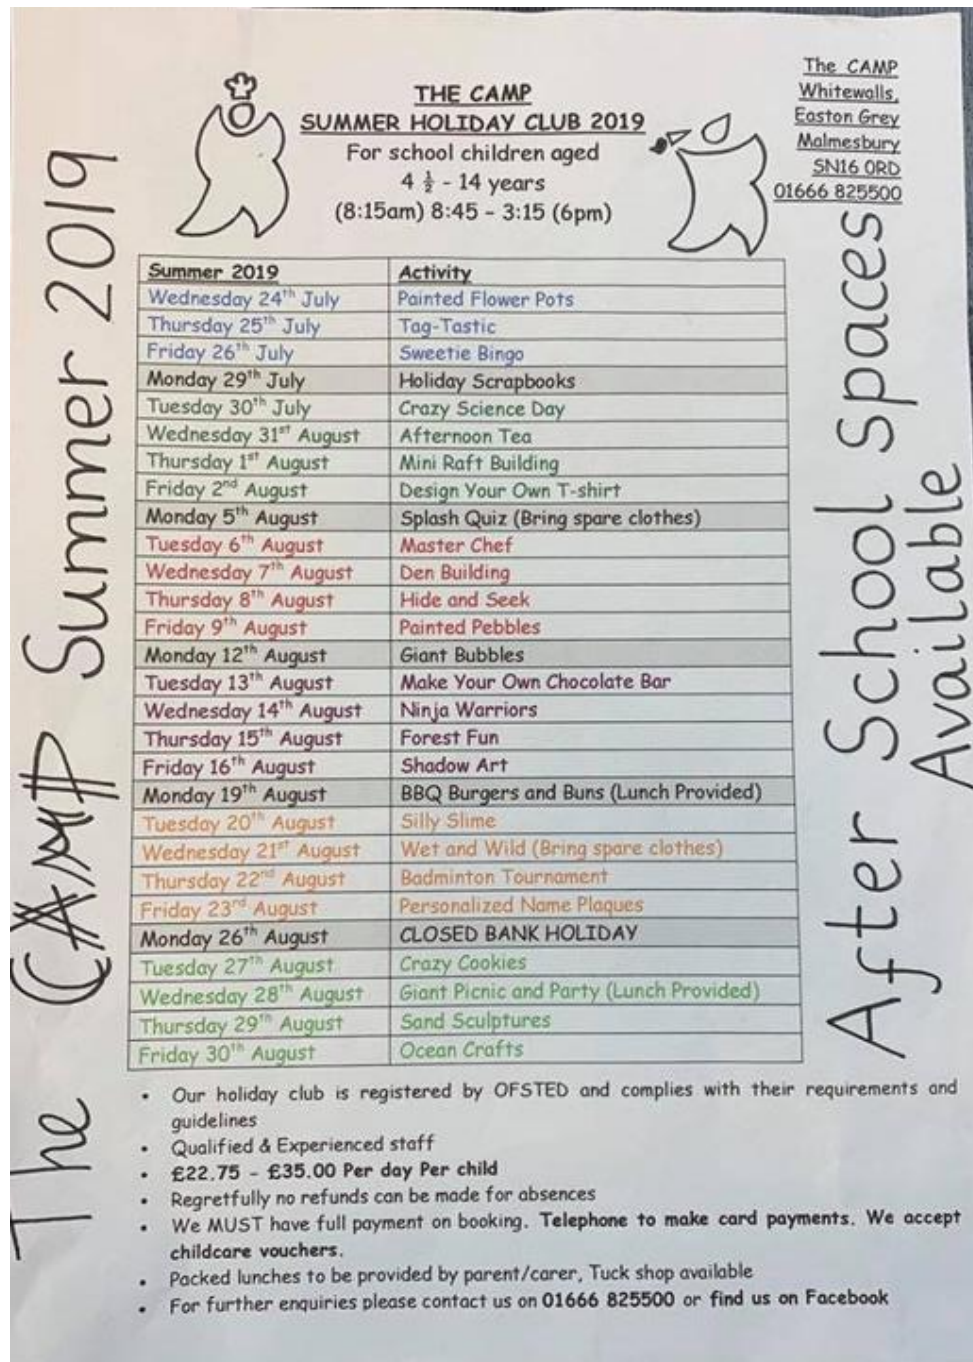 The CAMP Summer 2019
THE CAMP
SUMMER HOLIDAY CLUB 2019
For school children aged
4 ½ - 14 years
(8:15am) 8:45 - 3:15 (6pm)
The CAMP
Whitewalls,
Easton Grey
Malmesbury
SN16 0RD
01666 825500
Summer 2019 Activity
Wednesday 24th July Painted Flower Pots
Thursday 25th July Tag-Tastic
Friday 26th July Sweetie Bingo
Monday 29th July Holiday Scrapbooks
Tuesday 30th July Crazy Science Day
Wednesday 31st August Afternoon Tea
Thursday 1st August Mini Raft Building
Friday 2nd August Design Your Own T-shirt
Monday 5th August Splash Quiz (Bring spare clothes)
Tuesday 6th August Master Chef
Wednesday 7th August Den Building
Thursday 8th August Hide and Seek
Friday 9th August Painted Pebbles
Monday 12th August Giant Bubbles
Tuesday 13th August Make Your Own Chocolate Bar
Wednesday 14th August Ninja Warriors
Thursday 15th August Forest Fun
Friday 16th August Shadow Art
Monday 19th August BBQ Burgers and Buns (Lunch Provided)
Tuesday 20th August Silly Slime
Wednesday 21st August Wet and Wild (Bring spare clothes)
Thursday 22nd August Badminton Tournament
Friday 23rd August Personalized Name Plaques
Monday 26th August CLOSED BANK HOLIDAY
Tuesday 27th August Crazy Cookies
Wednesday 28th August Giant Picnic and Party (Lunch Provided)
Thursday 29th August Sand Sculptures
Friday 30th August Ocean Crafts
After School Spaces
Available
• Our holiday club is registered by OFSTED and complies with their requirements and
guidelines
• Qualified & Experienced staff
• £22.75 - £35.00 Per day Per child
• Regretfully no refunds can be made for absences
• We MUST have full payment on booking. Telephone to make card payments. We accept
childcare vouchers.
• Packed lunches to be provided by parent/carer, Tuck shop available
• For further enquiries please contact us on 01666 825500 or find us on Facebook